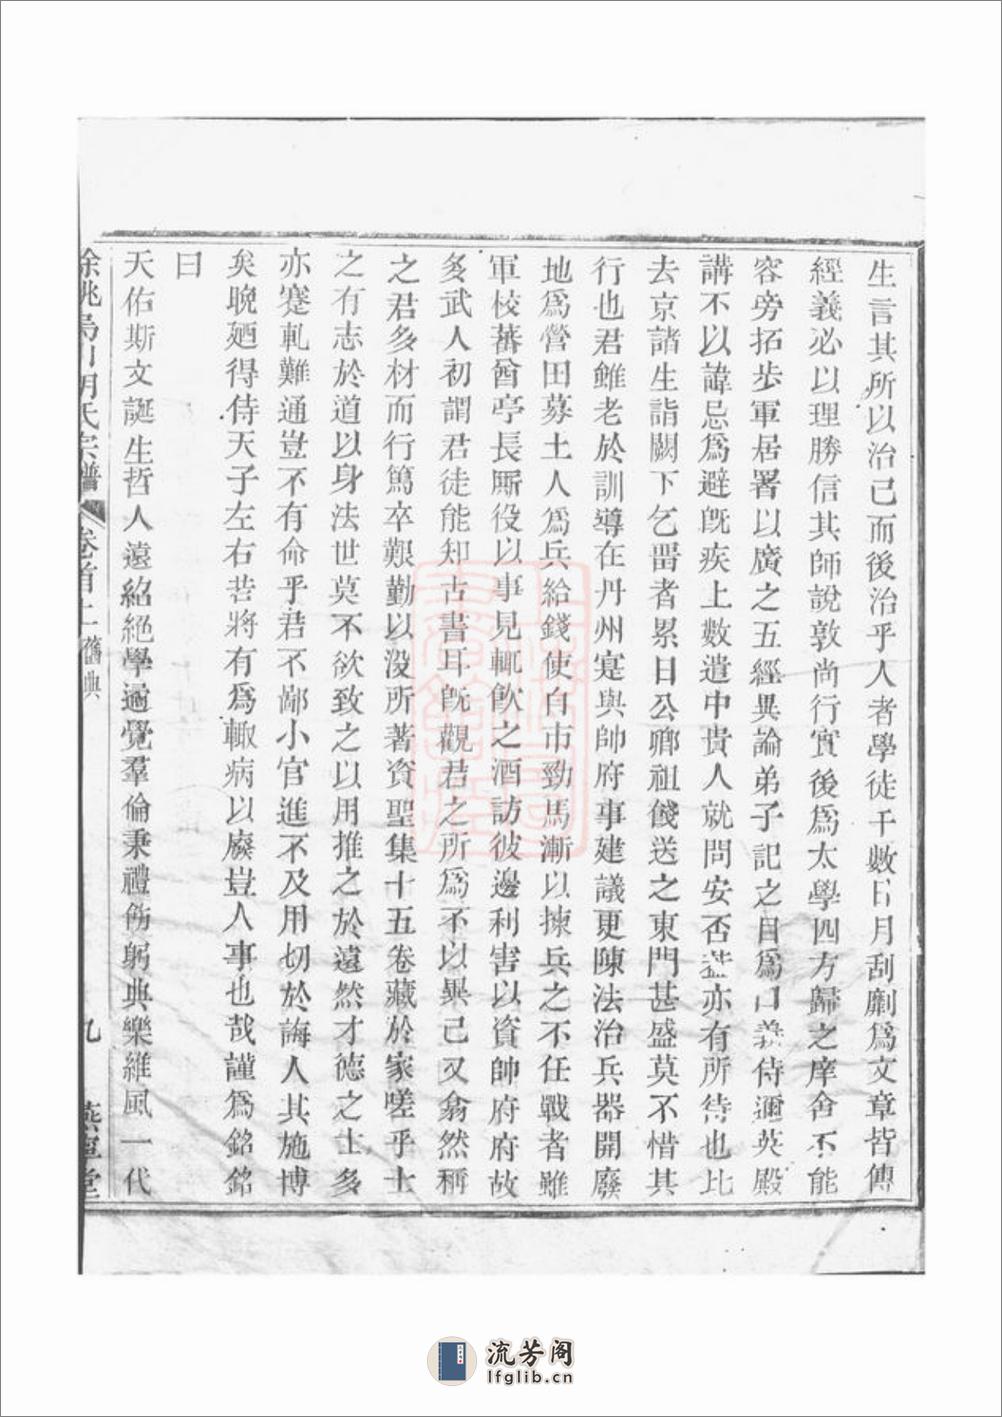 生言其所以治己而後治乎人者學徒千數日月刮劘爲文章皆傳
經義必以理勝信其師說敦尚行實後爲太學四方歸之庠舍不能
容旁拓步軍居署以廣之五經異論弟子記之目爲口義侍邇英殿
講不以諱忌爲避旣疾上數遣中貴人就問安否葢亦有所待也比
去京諸生詣闕下乞畱者累日公卿祖餞送之東門甚盛莫不惜其
行也君雖老於訓導在丹州寔與帥府事建議更陳法治兵器開廢
地爲營田募土人爲兵給錢使自市勁馬漸以揀兵之不任戰者雖
軍校蕃酋亭長厮役以事見輒飮之酒訪彼邊利害以資帥府府故
多武人初謂君徒能知古書耳旣觀君之所爲不以異己又翕然稱
之君多材而行篤卒艱勤以没所著資聖集十五卷藏於家嗟乎士
之有志於道以身法世莫不欲致之以用推之於遠然才德之士多
亦蹇軋難通豈不有命乎君不鄙小官進不及用切於誨人其施博
矣晚廼得侍天子左右若將有爲輙病以廢豈人事也哉謹爲銘銘
曰
天佑斯文誕生哲人遠紹絕學逈覺羣倫秉禮飭躬典樂維風一代
餘姚烏山胡氏宗譜 卷首上 舊典 九 燕翼堂
流芳阁
lfglib.cn